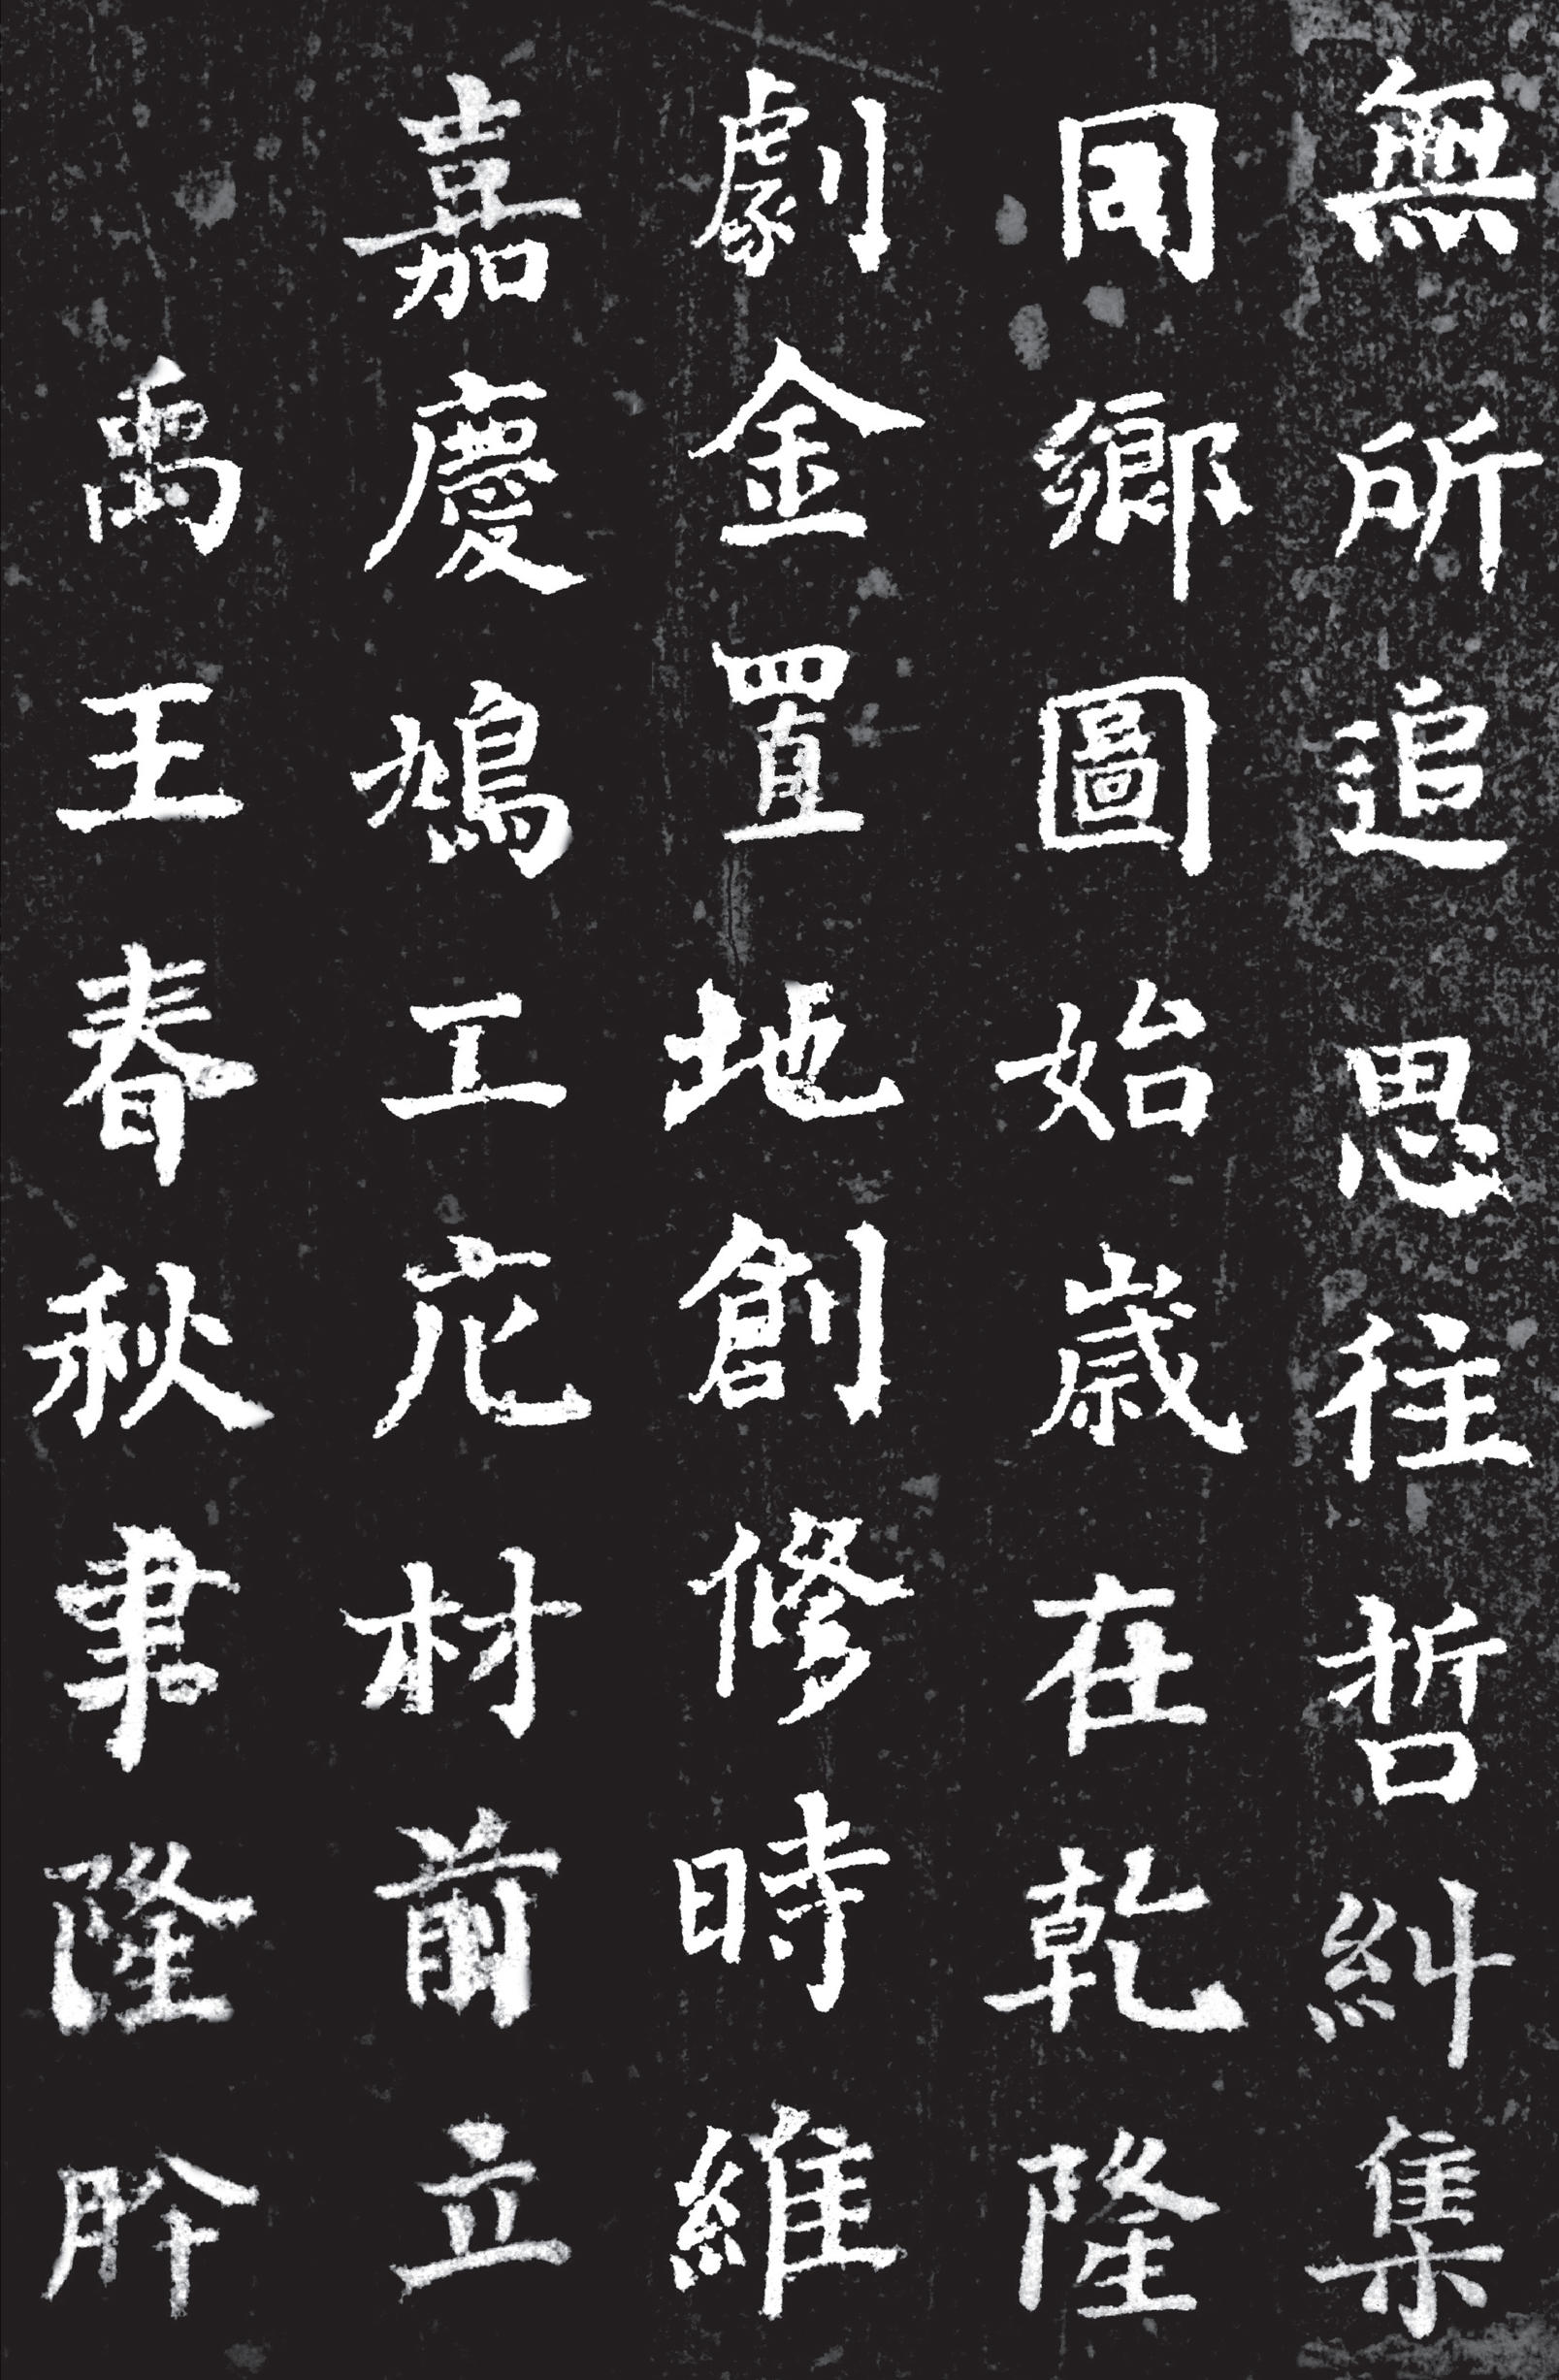 無所追思往哲糾集
同鄉圖始歲在乾隆
劇金置地創修時維
嘉慶鳩工庀材前立
禹王春秋聿隆肸